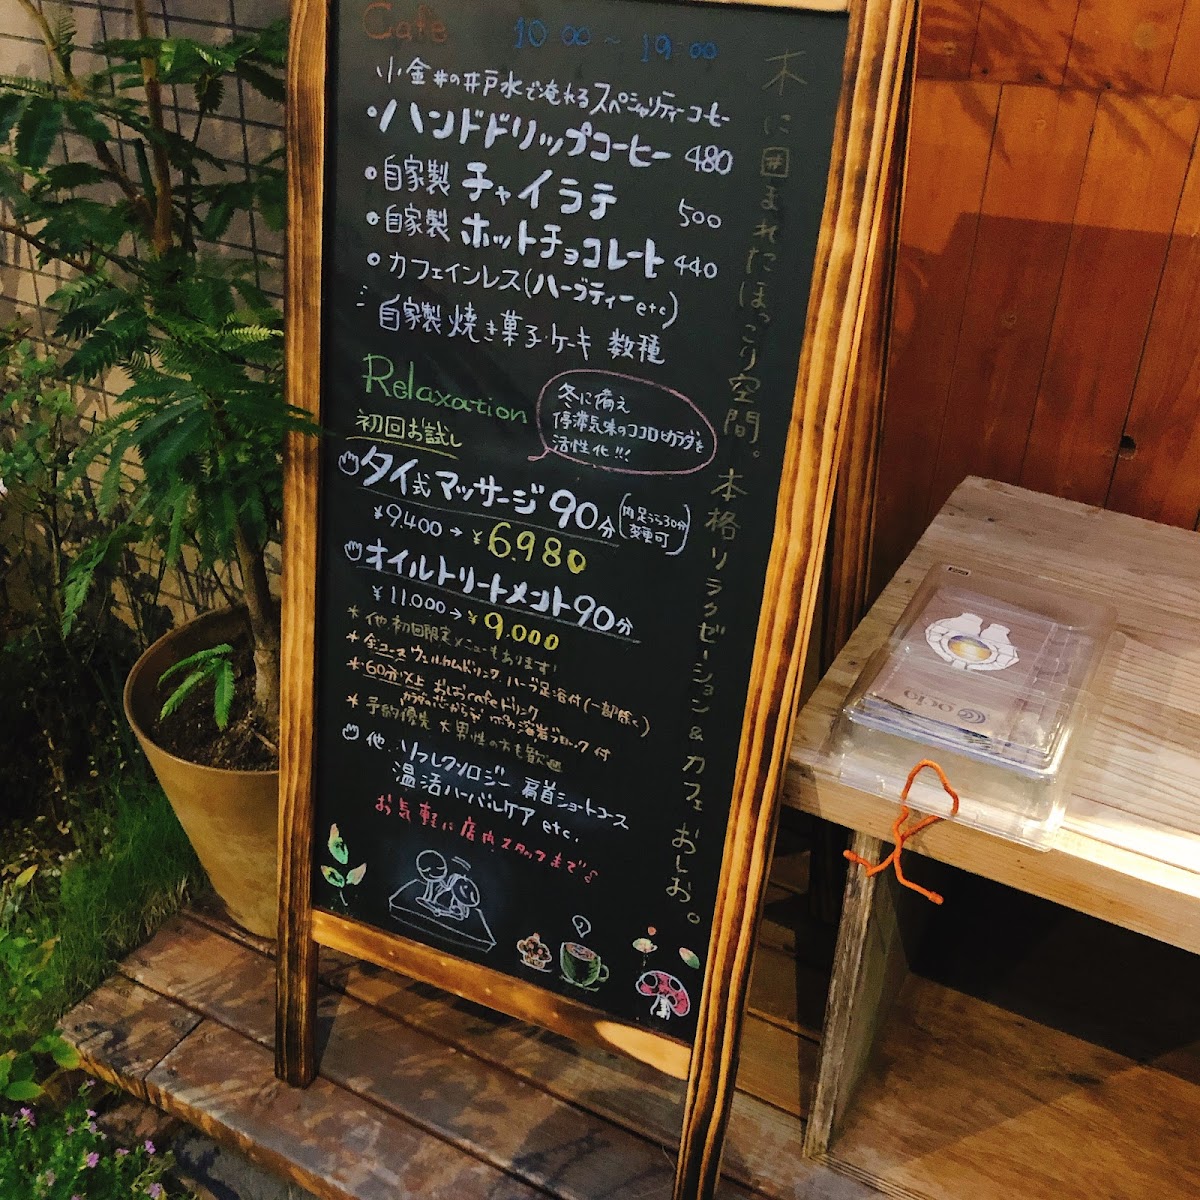 Cafe 10:00～19:00
小金井の井戸水で淹れるスペシャリティーコーヒー
・ハンドドリップコーヒー 480
・自家製 チャイラテ 500
・自家製 ホットチョコレート 440
・カフェインレス(ハーブティー etc)
自家製焼き菓子・ケーキ 数種
Relaxation
冬に備え
停滞気味のココロとカラダを
活性化!!!
初回お試し
タイ式マッサージ90分(内足うら30分
変更可)
¥9.400→¥6.980
オイルトリートメント90分
¥11.000→¥9.000
*他、初回限定メニューもあります!
*全コース ウェルカムドリンク ハーブ足浴付(一部除く)
*60分以上 おしおcafeドリンク
*予約優先 男性の方も歓迎
他…リフレクソロジー 肩首ショートコース
温活ハーバルケア etc.
お気軽に店内スタッフまで
木に囲まれたほっこり空間。本格リラクゼーション&カフェ おしお。
ocio